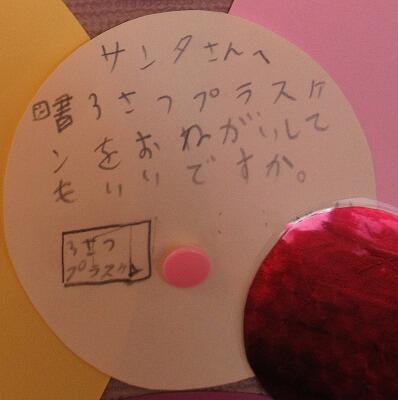 サンタさんへ
図書3さつプラスケ
ンをおねがいして
もいいですか。
3さつ
プラスケン